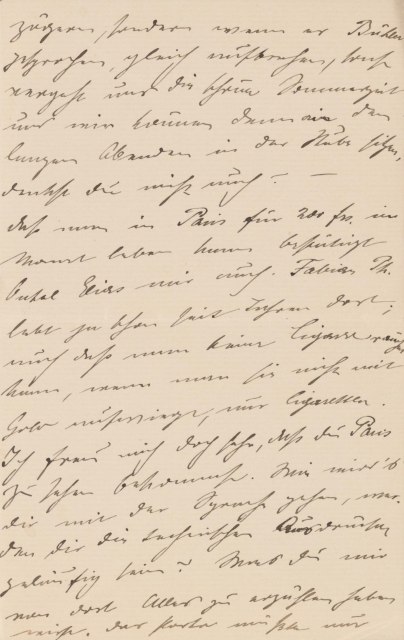 zögern, sondern wenn er Bücher
gesprochen, gleich aufbrechen, sonst
vergeht uns die schöne Sommerzeit
und wir können dann in den
langen Abenden in der Stube sitzen,
denkst du nicht auch? —
daß man in Paris für 200 frs. im
Monat leben kann bestätigt
Onkel Elias mir auch. Fabian Th.
lebt ja schon seit Jahren dort;
auch daß man keine Cigarre rauchen
kann, wenn man sie nicht mit
Gold aufwiegt, nur Cigaretten.
Ich freu mich doch sehr, daß du Paris
zu sehen bekommst. Wie wird's
dir mit der Sprache gehen, wer-
den dir die technischen Ausdrücke
geläufig sein? Was du mir
von dort Alles zu erzählen haben
wirst. das Porto müßte nur